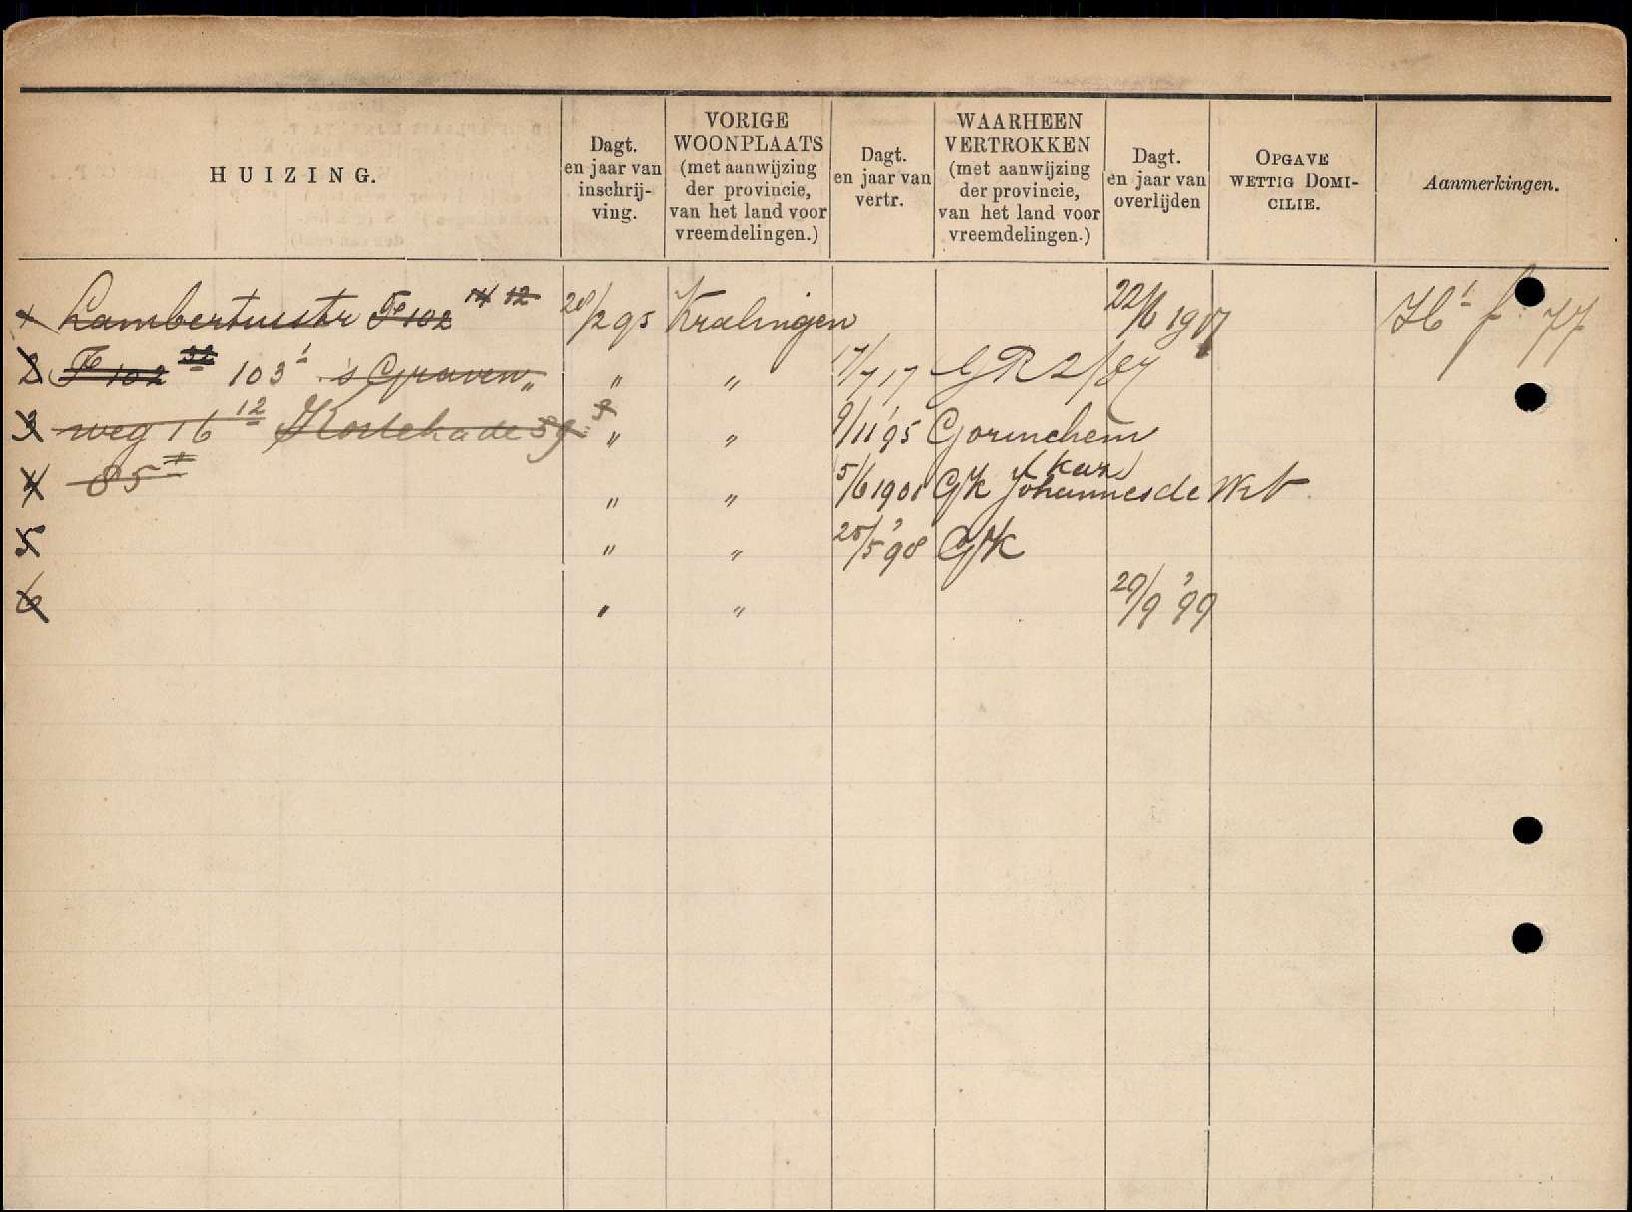 HUIZING.
Dagt. en jaar van inschrij- ving.
VORIGE WOONPLAATS (met aanwijzing der provincie, van het land voor vreemdelingen.)
Dagt. en jaar van vertr.
WAARHEEN VERTROKKEN (met aanwijzing der provincie, van het land voor vreemdelingen.)
Dagt. en jaar van overlijden
OPGAVE WETTIG DOMI- CILIE.
Aanmerkingen.
1 Lambertusstr F 102 14 12 28/2 95 Kralingen 22/6 1917 77
2 F 102 103 's Graven „ „ 17/7 17 GR
3 weg 16 12 89 „ „ 9/11 '95 Gorinchem
4 85 „ „ 5/6 1901 GK Johannes de Wit
5 „ „ 25/5 '98 GK
6 „ „ 29/9 '99